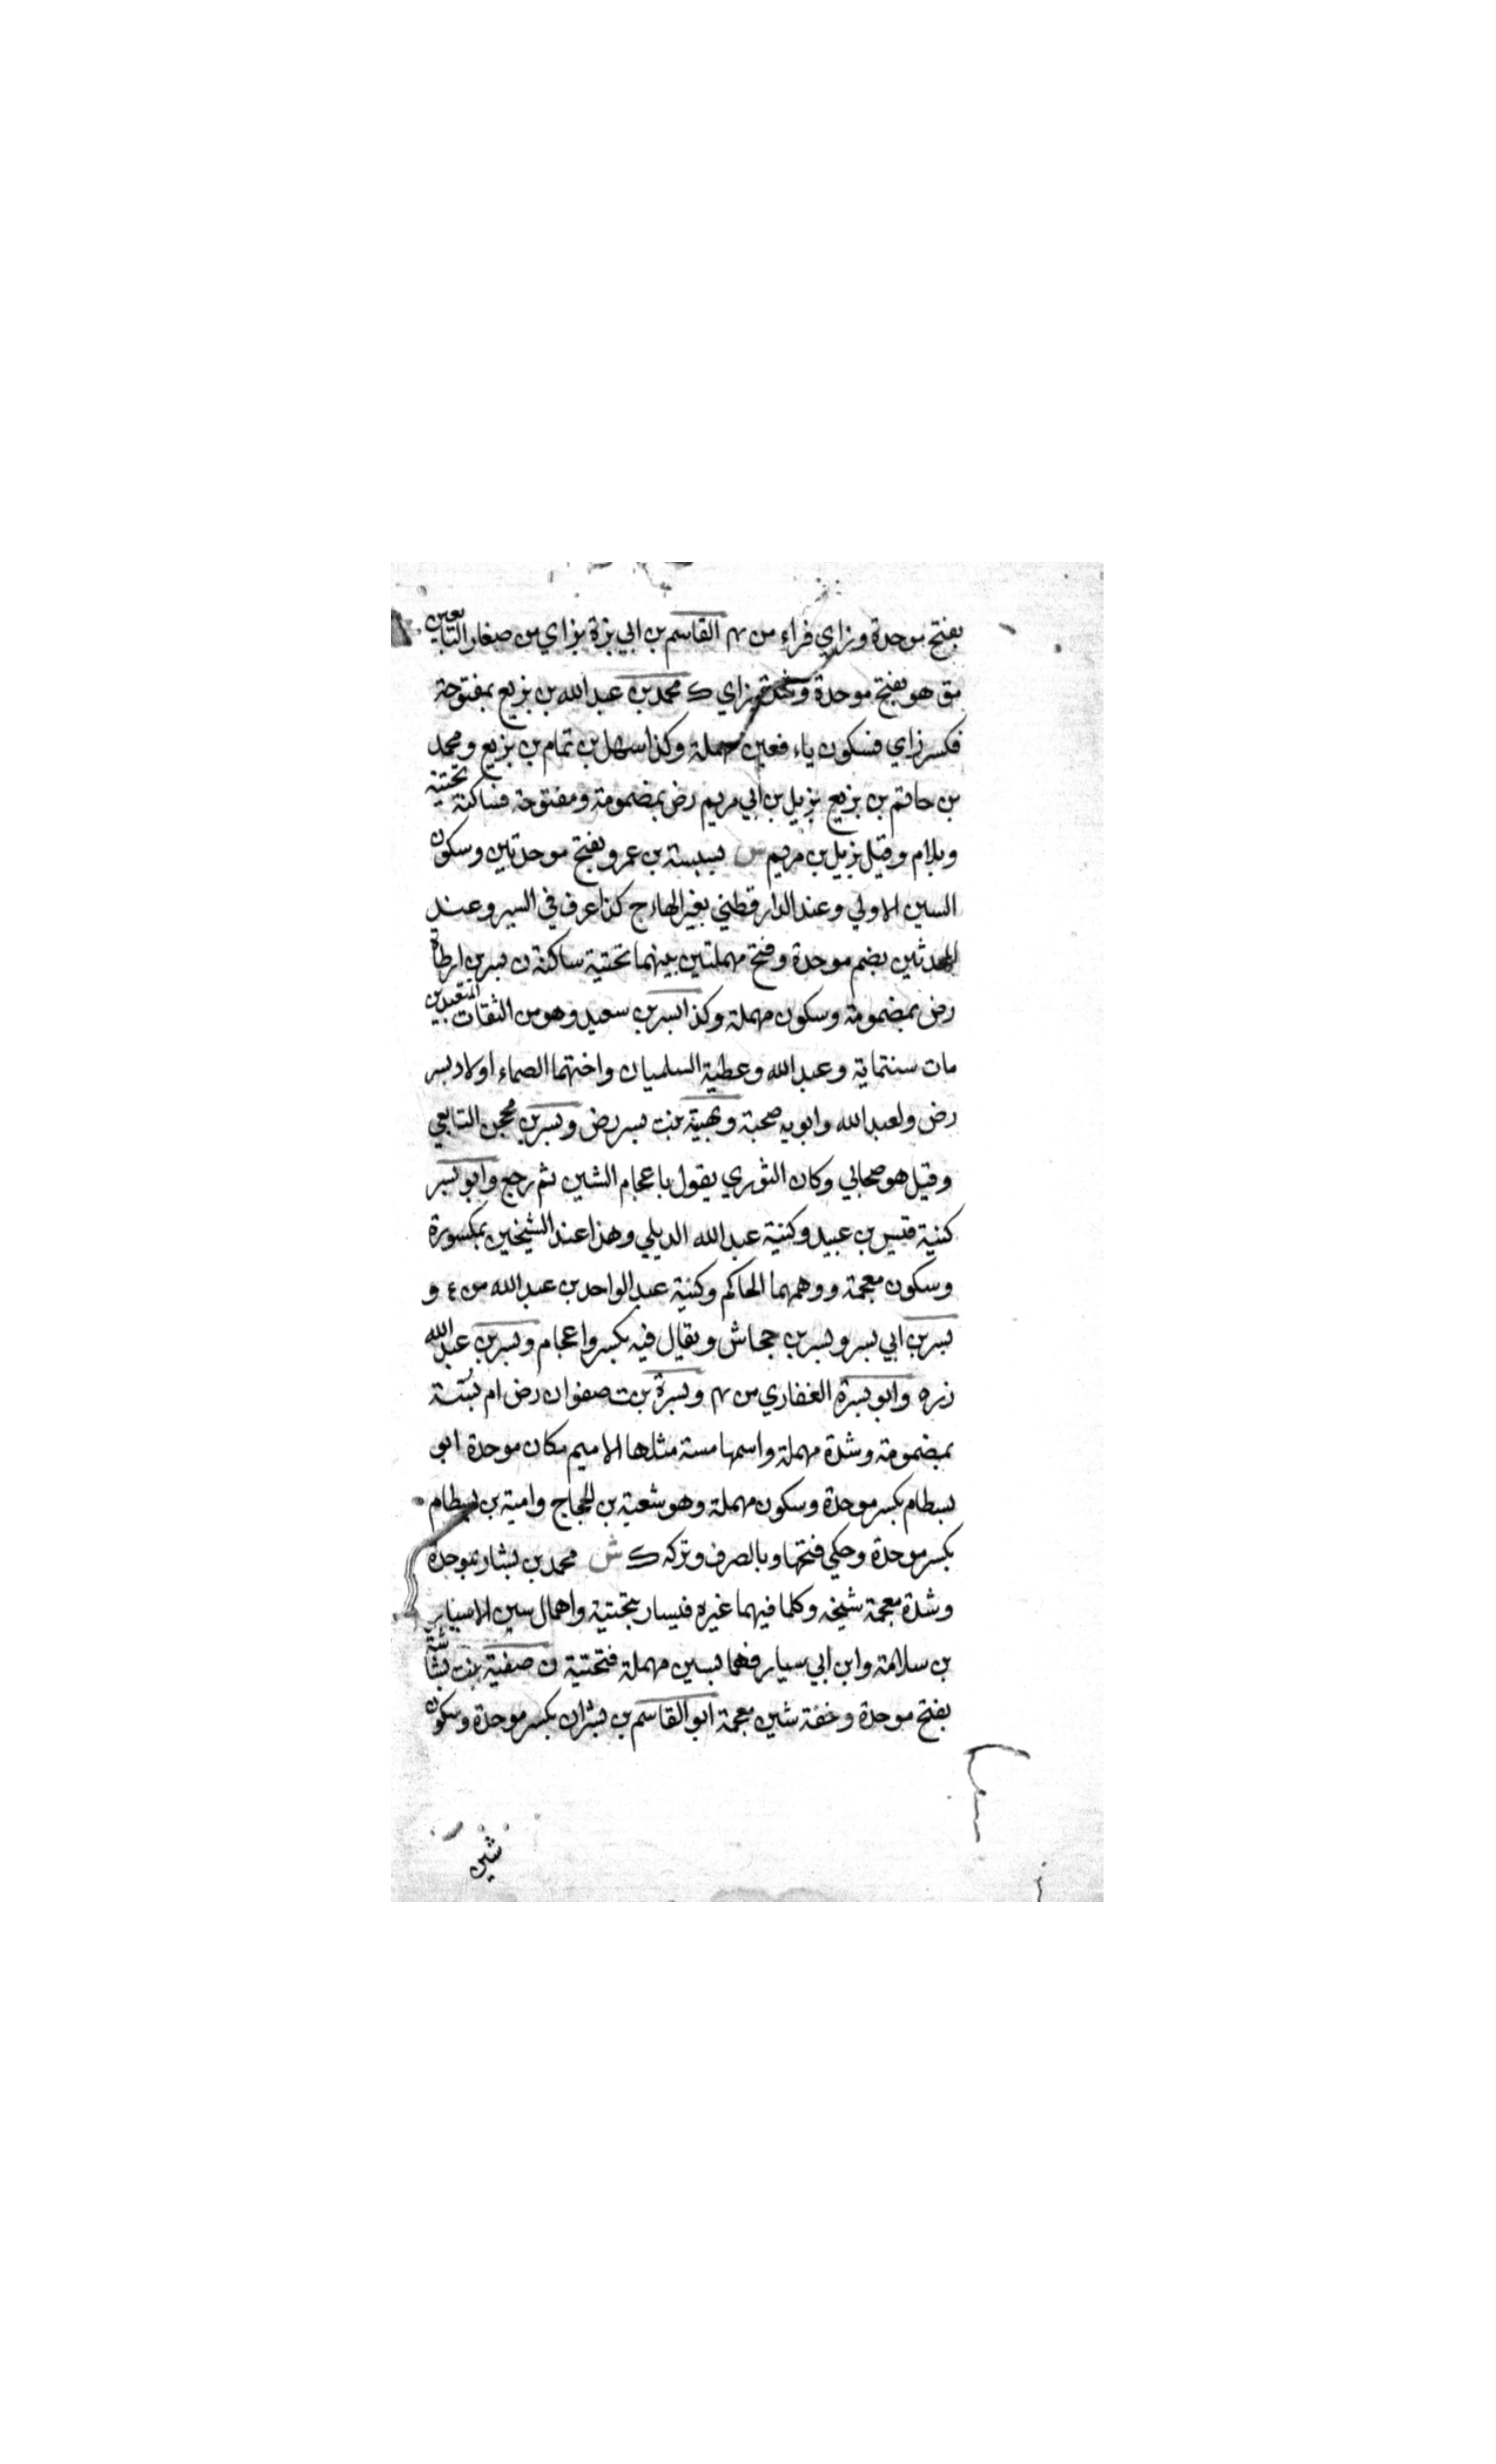 بفتح موحدة وزاي فراء من م القاسم بن ابي بزة بزاي من صغار التابعين
مق هو بفتح موحدة وشدة زاي ك محمد بن عبد الله بن بزيع بمفتوحة
فكسر زاي فسكون ياء فعين مهملة وكذا سهل بن تمام بن بزيع ومحمد
بن حاتم بن بزيع بزيل بن ابي مريم رض بمضمومة ومفتوحة فساكنة تحتية
وبلام وقيل بزيل بن مريم س بسبسة بن عمرو بفتح موحدتين وسكون
السين الاولي وعند الدارقطني بغير الهاء ج كذا عرف في السير وعند
المحدثين بضم موحدة وفتح مهملتين بينهما تحتية ساكنة ن بسر بن ارطاة
رض بمضمومة وسكون مهملة وكذا بسر بن سعيد وهو من الثقات المتعبدين
مات سنتماية وعبد الله وعطية السلميان واختهما الصماء اولاد بسر
رض ولعبد الله وابويه صحبة وبهية بنت بسر رض وبسر بن محجن التابعي
وقيل هو صحابي وكان الثوري يقول باعجام الشين ثم رجع وابو بسر
كنية قيس بن عبيد وكنية عبد الله الديلي وهذا عند الشيخين بمكسورة
وسكون معجمة ووهمهما الحاكم وكنية عبد الواحد بن عبد الله من ٤ و
بسر بن ابي بسر وبسر بن جحاش ويقال فيه بكسر واعجام وبسر بن عبد الله
نره وابو بسرة الغفاري من م وبسرة بنت صفوان رض ام بسة
بمضمومة وشدة مهملة واسمها مسة مثلها الا ميم مكان موحدة ابو
بسطام بكسر موحدة وسكون مهملة وهو شعبة بن الحجاج وامية بن بسطام
بكسر موحدة وحكي فتحها وبالصرف وتركه ك ش محمد بن بشار بموحدة
وشدة معجمة شيخه وكلما فيهما غيره فيسار بتحتية واهمال سين الا سيار
بن سلامة وابن ابي سيار فهما بسين مهملة فتحتية ن صفية بنت بشاشة
بفتح موحدة وخفة شين معجمة ابو القاسم بن بشران بكسر موحدة وسكون
شين